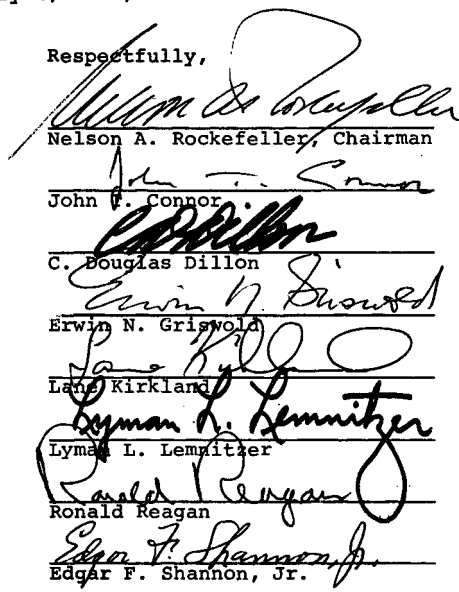 Respectfully,
Nelson A. Rockefeller
Nelson A. Rockefeller, Chairman
John T. Connor
John T. Connor
C. Douglas Dillon
Erwin N. Griswold
Erwin N. Griswold
Lane Kirkland
Lane Kirkland
Lyman L. Lemnitzer
Lyman L. Lemnitzer
Ronald Reagan
Ronald Reagan
Edgar F. Shannon, Jr.
Edgar F. Shannon, Jr.